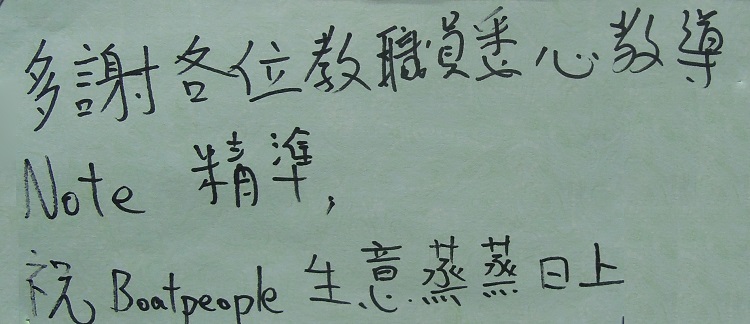 多謝各位教職員悉心教導
Note 精準,
祝 Boatpeople 生意蒸蒸日上